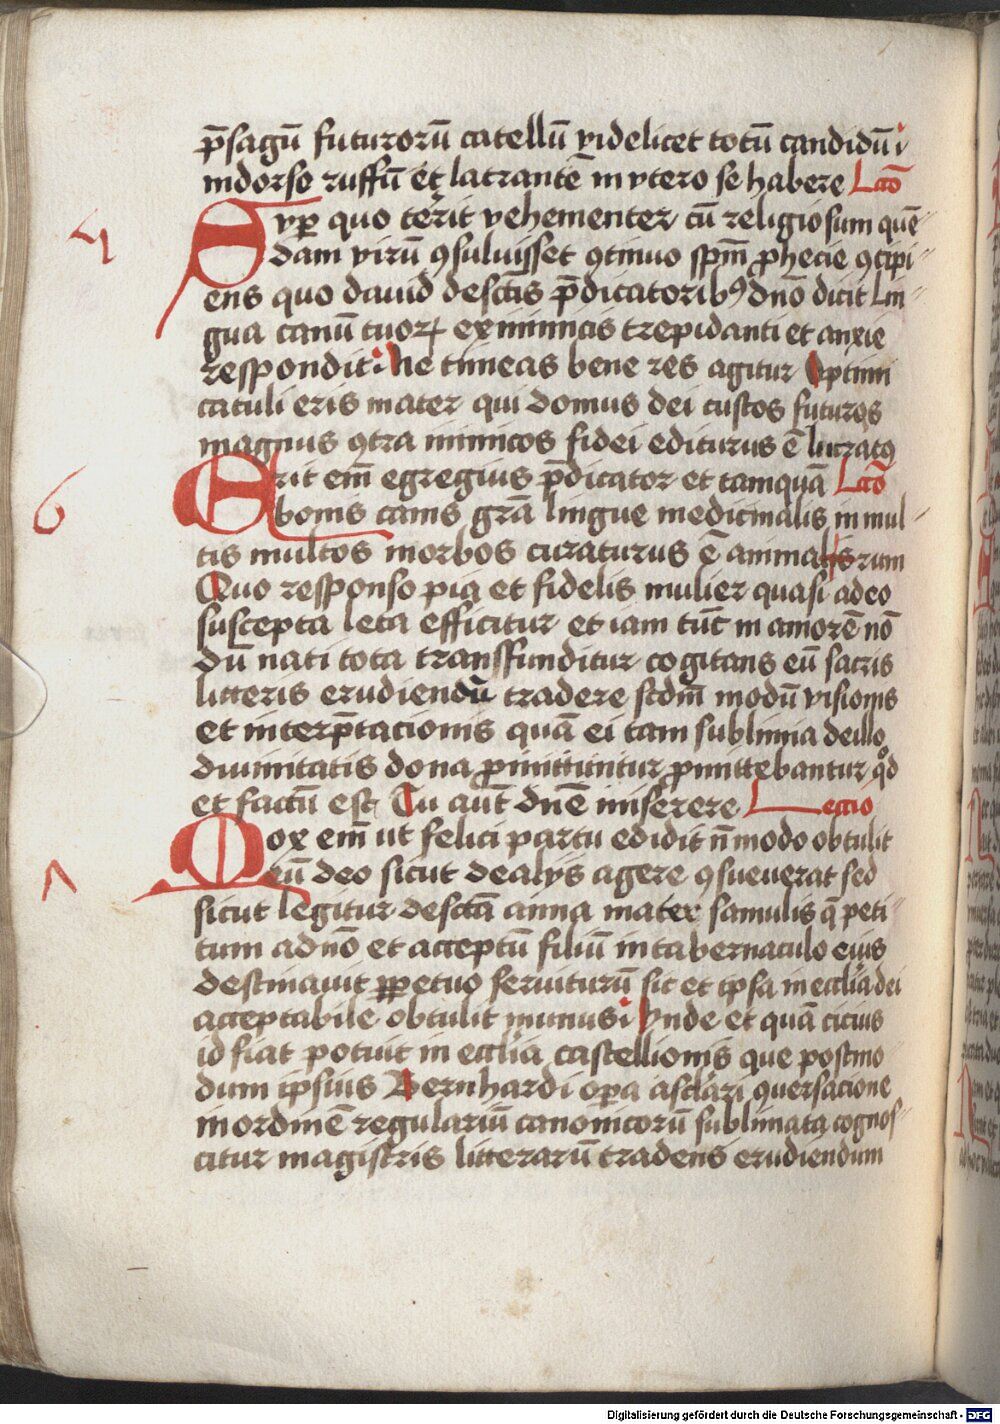 p̄sagū futurorū catellū videlicet totū candidū i
indorso ruffū et latrantē in vtero se habere Lcō
5
Sup̱ quo terit vehementer cū religiosum quē-
dam virū ꝯsuluisset ꝯtinuo sp̄m ꝓphecie ꝯcipi-
ens quo dauid desctīs p̄dicatoribꝰ dnō dicit Lin
gua canū tuoꝝ ex inimicis trepidanti et anxie
respondit Ne timeas bene res agitur Optimi
catuli eris mater qui domus dei custos futurꝰ
magnus ꝯtra inimicos fidei editurus ē lr̄atꝰ
6
Erit em̄ egregius p̄dicator et tamquā Lcō
bonis canis grā lingue medicinalis in mul-
tis multos morbos curaturus ē animalisrum
Quo responso pia et fidelis mulier quasi adeo
suscepta leta efficitur et iam tūc in amorē nō
dū nati tota transfunditur cogitans eū sacris
litteris erudiendū tradere scdm̄ modū visionis
et interp̄tacionis quā ei tam sublimia de illo
diuinitatis dona ꝓmittuntur ꝓmittebantur qd
et factū est Tu aūt dnē miserere Lectio
7
Mox em̄ ut felici partu edidit n̄ modo obtulit
eū deo sicut de alijs agere ꝯsueuerat sed
sicut legitur desctā anna mater samulis q̄ peti
tum adnō et acceptū filiū in tabernaculo eius
destinauit ꝑpetuo seruiturū sit et ipsa in ecclīa dei
acceptabile obtulit munus Vnde et quā cicius
id fiat potuit in ecclīa castellionis que postmo
dum ipsius Bernhardi oꝑa asclari ꝯuersacione
in ordinē regulariū canonicorū sublimata cognos-
citur magistris litterarū tradens erudiendum
Digitalisierung gefördert durch die Deutsche Forschungsgemeinschaft - DFG